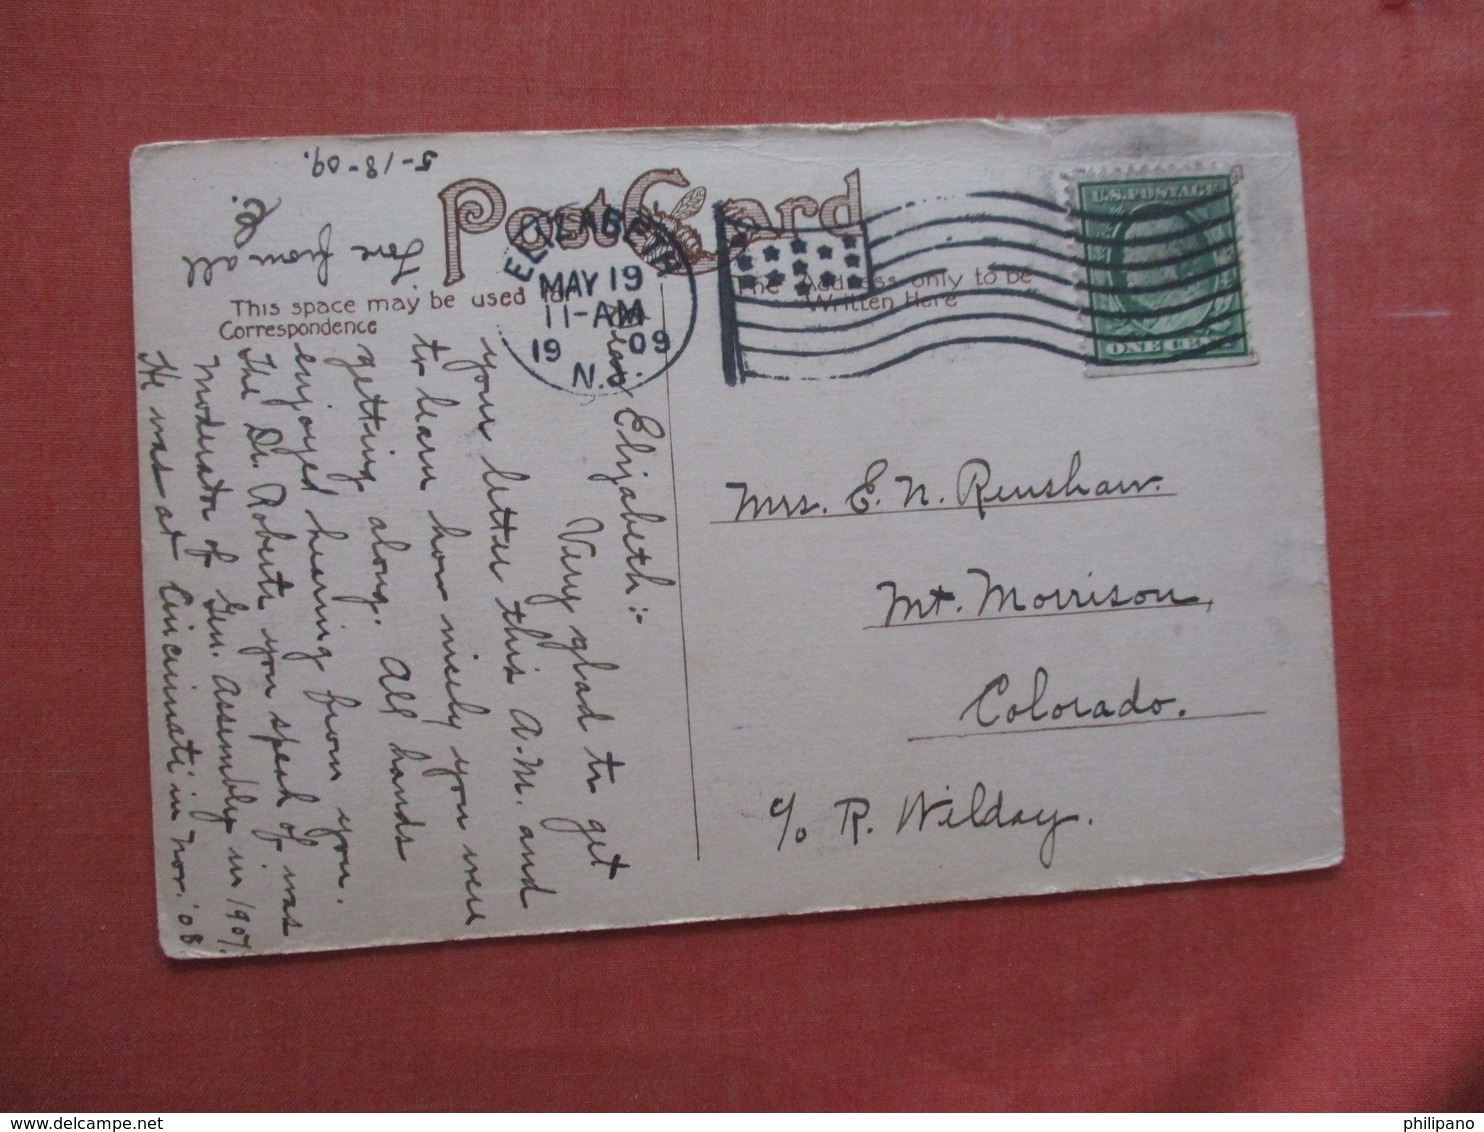 5-18-09.
Post Card
This space may be used for
Correspondence
The Address only to be
Written Here
ELIZABETH
MAY 19
11-AM
19 09
N.J.
U.S. POSTAGE
ONE CENT
Dear Elizabeth:-
Very glad to get
your letter this A.M. and
to learn how nicely you were
getting along. All hands
enjoyed hearing from you.
The Dr. Roberts you speak of was
Moderator of Gen. Assembly in 1907.
He was at Cincinnati in Nov. '08
Love from all
E.
Mrs. E. N. Renshaw.
Mt. Morrison,
Colorado.
c/o R. Wilday.
philipano